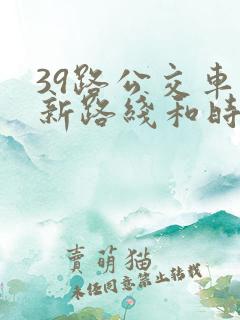 39路公交车
新路线和时
賣萌猫
未经同意禁止转载